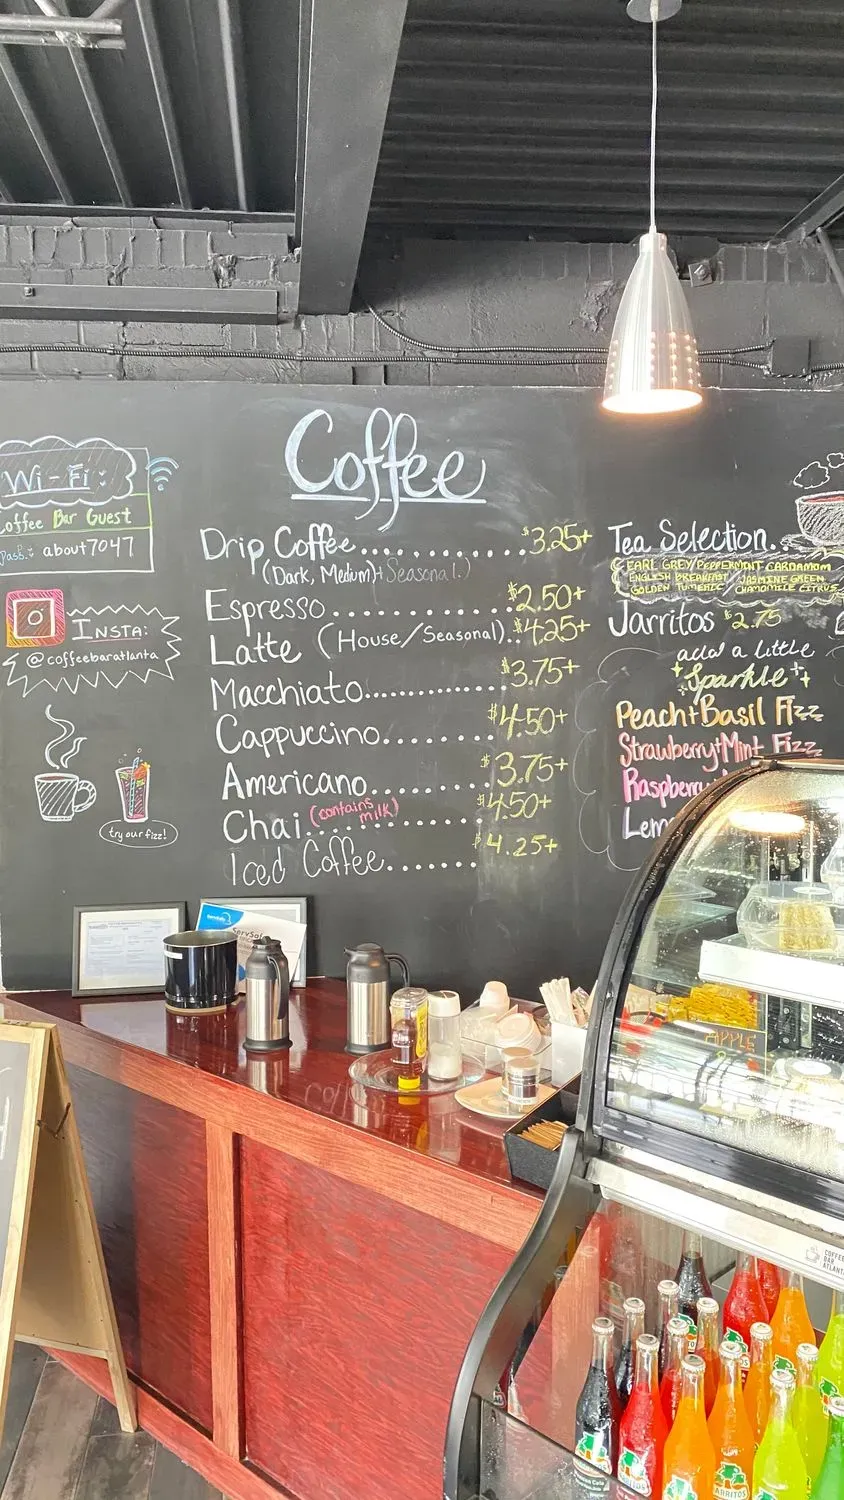 Wi-Fi:
Coffee Bar Guest
Pass: about7047
INSTA:
@coffeebaratlanta
try our fizz!
Coffee
Drip Coffee..............$3.25+
(Dark, Medium + Seasonal)
Espresso..............$2.50+
Latte (House/Seasonal)..$4.25+
Macchiato..............$3.75+
Cappuccino.......$4.50+
Americano.........$3.75+
Chai (contains milk)............$4.50+
Iced Coffee.......$4.25+
Tea Selection...
EARL GREY / PEPPERMINT CARDAMOM
ENGLISH BREAKFAST / JASMINE GREEN
GOLDEN TUMERIC / CHAMOMILE CITRUS
Jarritos $2.75
add a little
Sparkle
Peach+Basil Fizz
Strawberry+Mint Fizz
Raspberry
Lem
ServSafe
APPLE
COFFEE
BAR
ATLANTA
JARRITOS